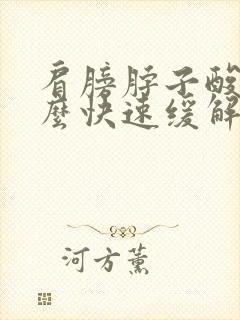 肩膀脖子酸
麼快速缓解
河方薰